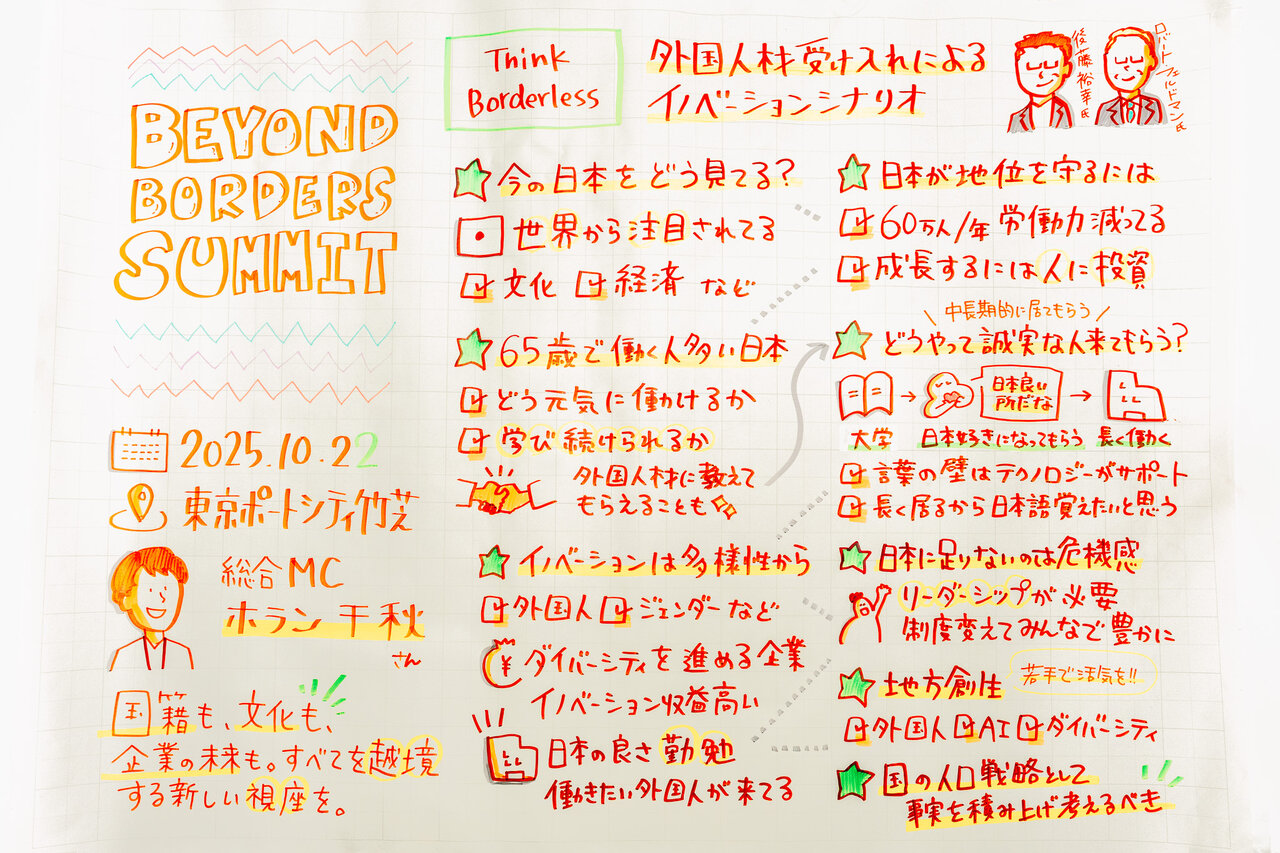 BEYOND
BORDERS
SUMMIT
2025.10.22
東京ポートシティ竹芝
総合MC
ホラン千秋
さん
国籍も、文化も、
企業の未来も。すべてを越境
する新しい視座を。
Think
Borderless
外国人材受け入れによる
イノベーションシナリオ
後藤裕幸氏
ロバートフェルドマン氏
今の日本をどう見てる?
世界から注目されてる
文化 経済 など
65歳で働く人多い日本
どう元気に働けるか
学び続けられるか
外国人材に教えて
もらえることも
イノベーションは多様性から
外国人 ジェンダーなど
¥
ダイバーシティを進める企業
イノベーション収益高い
日本の良さ勤勉
働きたい外国人が来てる
日本が地位を守るには
60万人/年 労働力減ってる
成長するには人に投資
中長期的に居てもらう
どうやって誠実な人来てもらう?
日本良い
所だな
大学 日本好きになってもらう 長く働く
言葉の壁はテクノロジーがサポート
長く居るから日本語覚えたいと思う
日本に足りないのは危機感
リーダーシップが必要
制度変えてみんなで豊かに
地方創生
若手で活気を!!
外国人 AI ダイバーシティ
国の人口戦略として
事実を積み上げ考えるべき